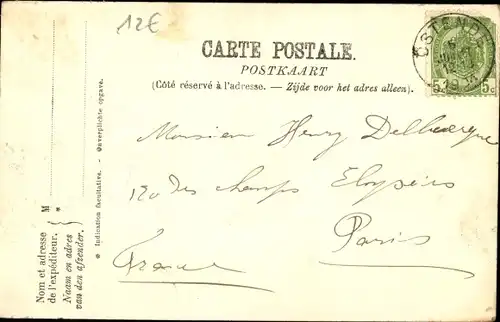 12€
CARTE POSTALE.
POSTKAART
(Côté réservé à l'adresse. — Zijde voor het adres alleen).
5 5c
Monsieur Henry
120 des Champs Elysées
Paris
France
Nom et adresse
de l'expéditeur.
Naam en adres
van den afzender.
M
*
* Indication facultative. - Onverplichte opgave.